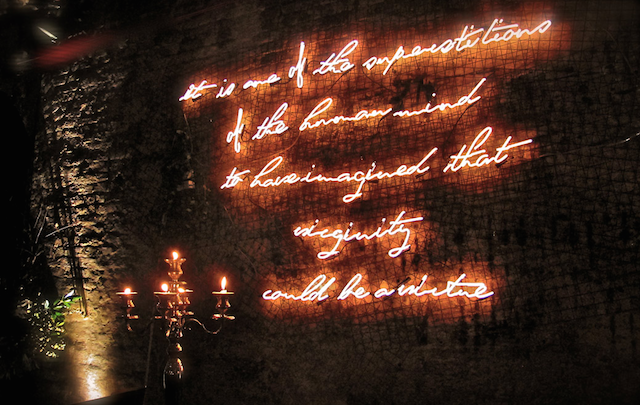 it is one of the superstitions
of the human mind
to have imagined that
virginity
could be a virtue